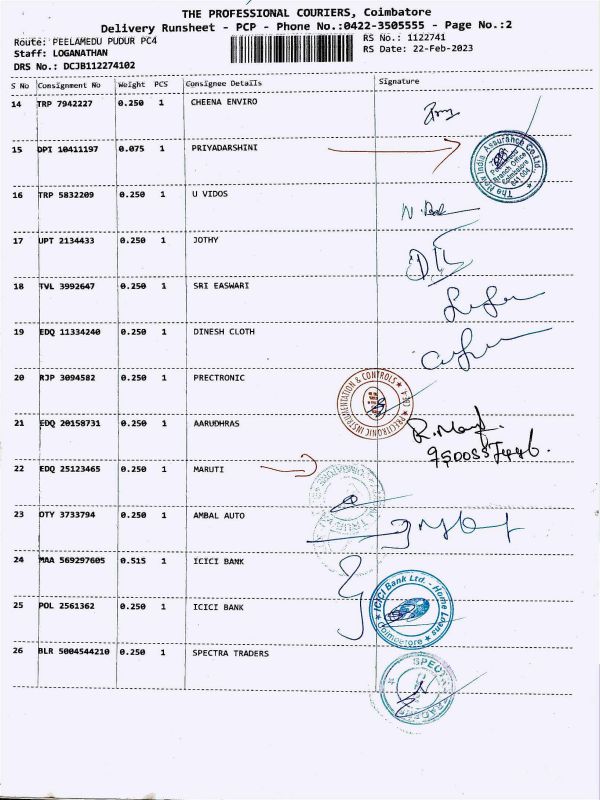 THE PROFESSIONAL COURIERS, Coimbatore
Delivery Runsheet - PCP - Phone No.:0422-3505555 - Page No.:2
Route: PEELAMEDU PUDUR PC4 RS No.: 1122741
Staff: LOGANATHAN RS Date: 22-Feb-2023
DRS No.: DCJB112274102
S No Consignment No Weight PCS Consignee Details Signature
14 TRP 7942227 0.250 1 CHEENA ENVIRO
15 DPI 10411197 0.075 1 PRIYADARSHINI
The New India Assurance Co. Ltd.
Branch Office
Coimbatore
641 004
16 TRP 5832209 0.250 1 U VIDOS
17 UPT 2134433 0.250 1 JOTHY
18 TVL 3992647 0.250 1 SRI EASWARI
19 EDQ 11334240 0.250 1 DINESH CLOTH
20 RJP 3094582 0.250 1 PRECTRONIC
PRECITRONIC INSTRUMENTATION & CONTROLS
21 EDQ 20158731 0.250 1 AARUDHRAS
22 EDQ 25123465 0.250 1 MARUTI
23 OTY 3733794 0.250 1 AMBAL AUTO
24 MAA 569297605 0.515 1 ICICI BANK
25 POL 2561362 0.250 1 ICICI BANK
ICICI Bank Ltd. - Home Loans
Coimbatore
26 BLR 5004544210 0.250 1 SPECTRA TRADERS